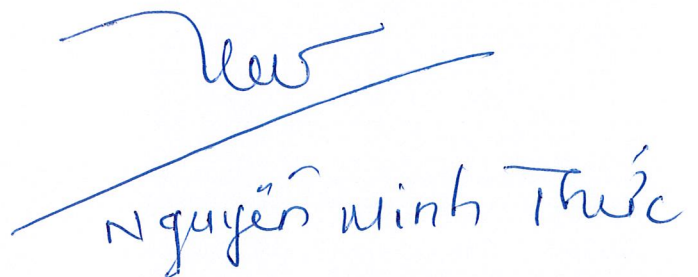 Nguyễn Minh Thức